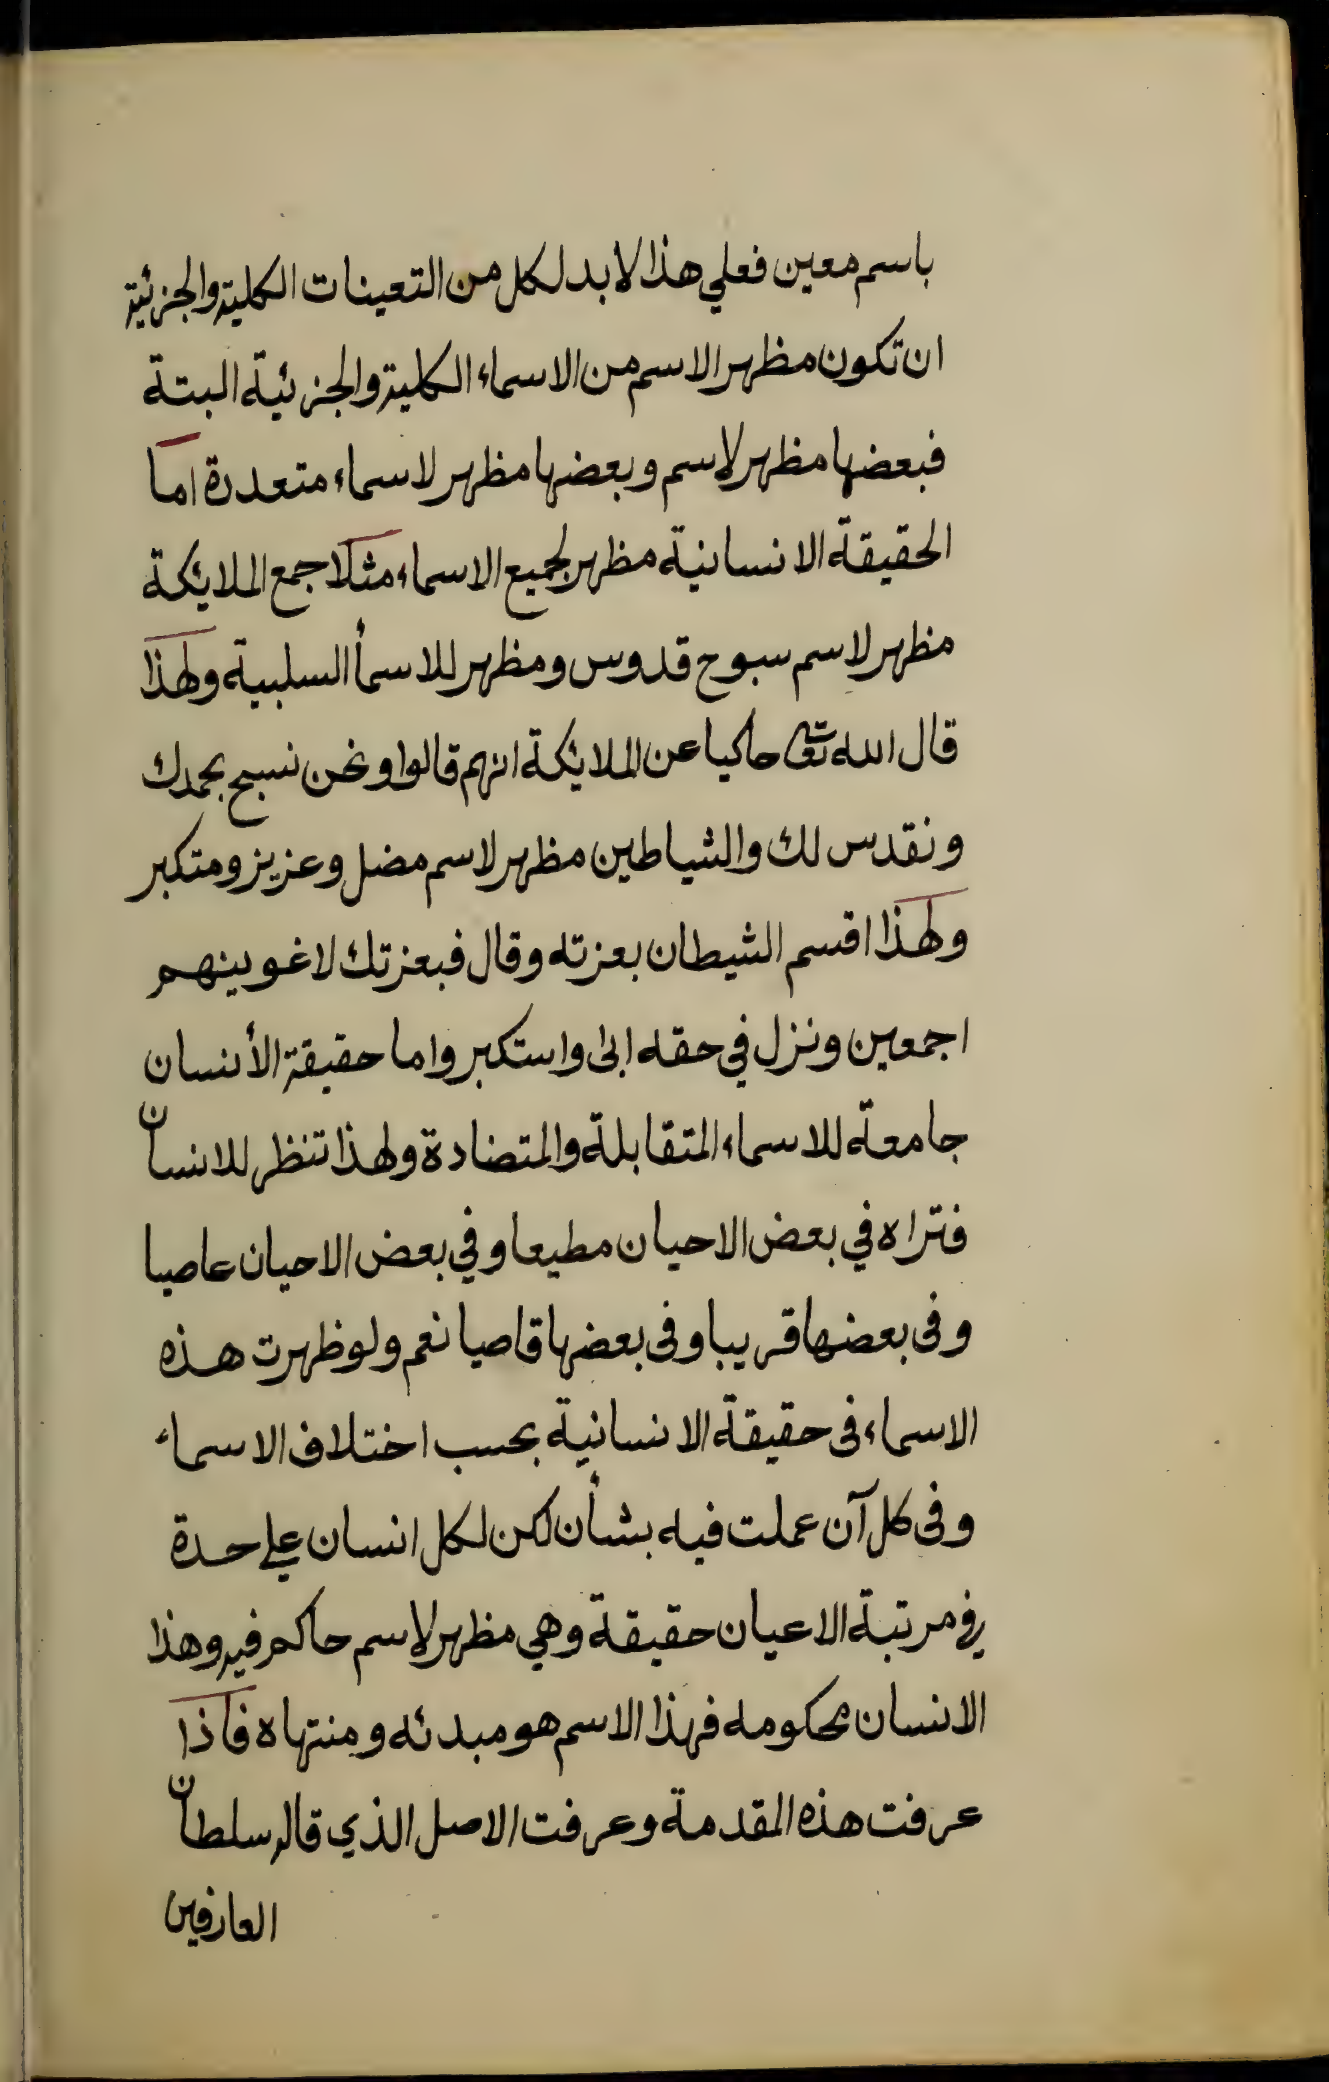 باسم معين فعلي هذا لابد لكل من التعينات الكلية والجزئية
ان تكون مظهر الاسم من الاسماء الكلية والجزئية البتة
فبعضها مظهر لاسم وبعضها مظهر لاسماء متعددة اما
الحقيقة الانسانية مظهر لجميع الاسماء مثلا جمع الملائكة
مظهر لاسم سبوح قدوس ومظهر للاسمأ السلبية ولهذا
قال الله تعالى حاكيا عن الملائكة انهم قالوا ونحن نسبح بحمدك
ونقدس لك والشياطين مظهر لاسم مضل وعزيز ومتكبر
ولهذا اقسم الشيطان بعزته وقال فبعزتك لاغوينهم
اجمعين ونزل في حقه ابى واستكبر واما حقيقة الأنسان
جامعة للاسماء المتقابلة والمتضادة ولهذا تنظر للانسان
فتراه في بعض الاحيان مطيعا وفي بعض الاحيان عاصيا
وفى بعضها قريبا وفى بعضها قاصيا نعم ولو ظهرت هذه
الاسماء فى حقيقة الانسانية بحسب اختلاف الاسماء
وفى كل آن عملت فيه بشأن لكن لكل انسان على حدة
في مرتبة الاعيان حقيقة وهي مظهر لاسم حاكم فيه وهذا
الانسان محكومه فهذا الاسم هو مبدئه ومنتهاه فاذا
عرفت هذه المقدمة وعرفت الاصل الذي قاله سلطان
العارفين